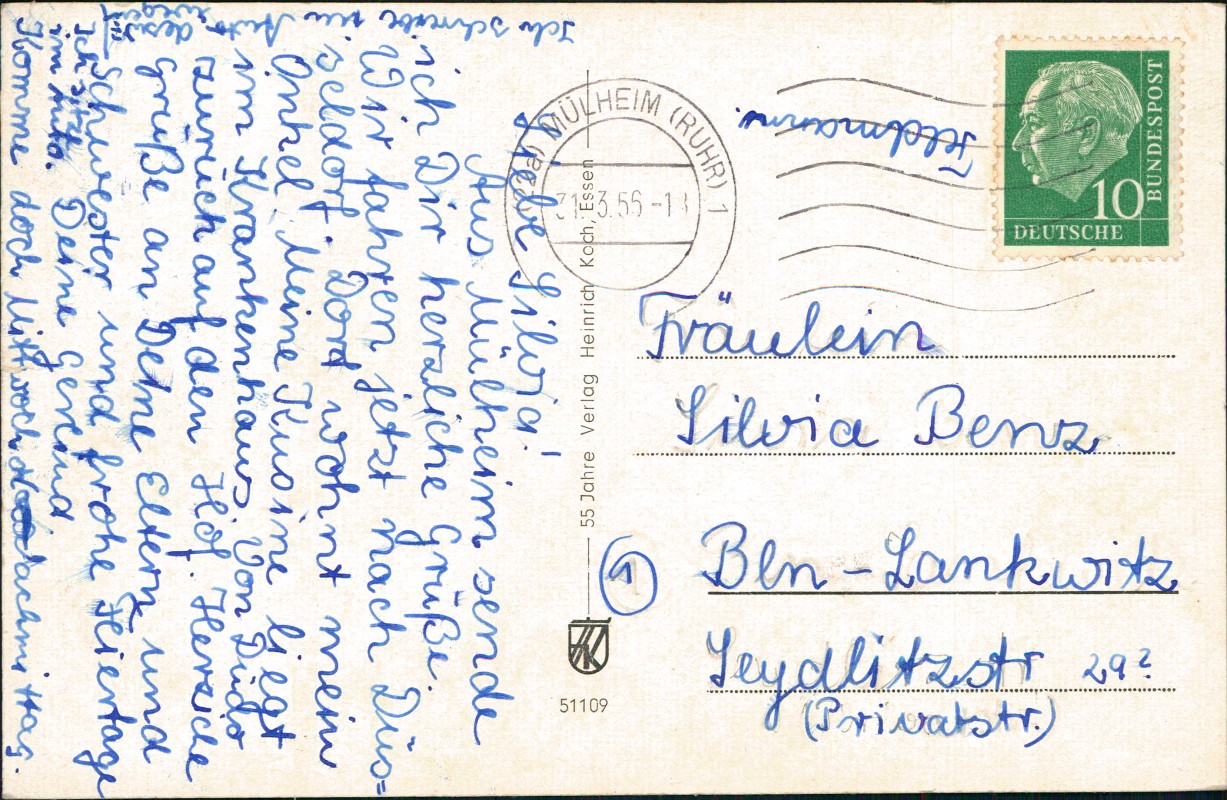 Liebe Silvia!
Aus Mülheim sende
ich Dir herzliche Grüße.
Wir fahren jetzt nach Düs=
seldorf. Dort wohnt mein
Onkel. Meine Kusine liegt
im Krankenhaus. Von
zurück auf den Hof. Herzliche
Grüße an Deine Eltern und
Schwester und frohe Feiertage
Deine
Ich sitze
im Auto.
Komme doch Mittwoch nachmittag.
Ich schreibe im Auto
55 Jahre Verlag Heinrich Koch, Essen
51109
MÜLHEIM (RUHR) 1
31.3.56-18
Feldmanns.
BUNDESPOST
10
DEUTSCHE
Fräulein
Silvia Benz
1
Bln - Lankwitz
Seydlitzstr 29?
(Privatstr.)